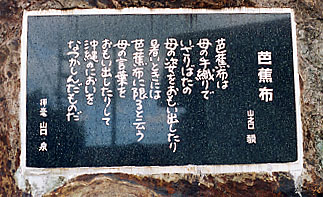 芭蕉布
山之口 貘
芭蕉布は
母の手織りで
いざりばたの
母の姿をおもい出したり
暑いときには
芭蕉布に限ると云う
母の言葉を
おもい出したりして
沖縄のにおいを
なつかしんだものだ
山口 泉